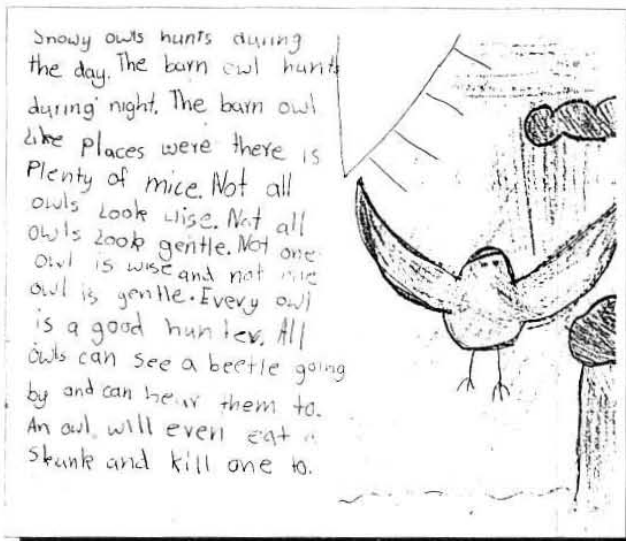 Snowy owls hunts during
the day. The barn owl hunts
during night. The barn owl
like places were there is
Plenty of mice. Not all
owls look wise. Not all
owls look gentle. Not one
owl is wise and not one
owl is gentle. Every owl
is a good hunter. All
owls can see a beetle going
by and can hear them to.
An owl will even eat a
skunk and kill one to.